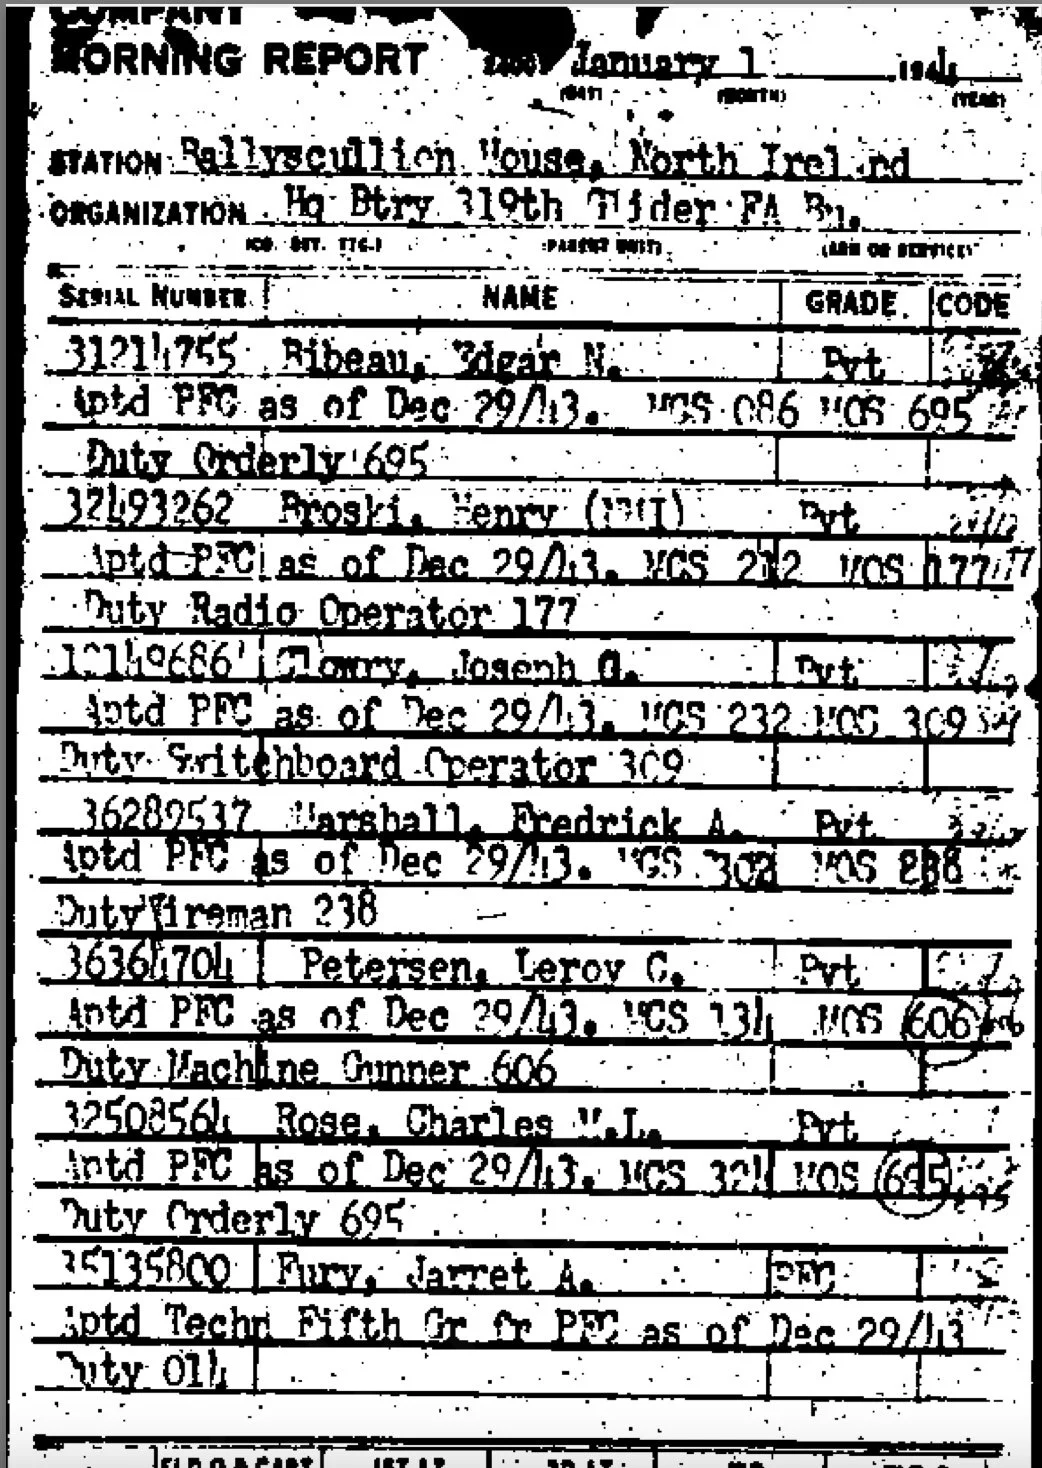 COMPANY
MORNING REPORT 2400 January 1 1944
(DAY) (MONTH) (YEAR)
STATION Ballyscullion House, North Ireland
ORGANIZATION Hq Btry 319th Glider FA Bn.
(CO. DET. ETC.) (PARENT UNIT) (ARM OR SERVICE)
SERIAL NUMBER NAME GRADE CODE
31214755 Bibeau, Edgar N. Pvt
Aptd PFC as of Dec 29/43. MCS 086 MOS 695
Duty Orderly 695
32493262 Broski, Henry (NMI) Pvt
Aptd PFC as of Dec 29/43. MCS 232 MOS 177
Duty Radio Operator 177
Clowry, Joseph G. Pvt
Aptd PFC as of Dec 29/43. MCS 232 MOS 309
Duty Switchboard Operator 309
36289537 Marshall, Fredrick A. Pvt
Aptd PFC as of Dec 29/43. MCS 302 MOS 238
Duty Wireman 238
36364704 Petersen, Leroy C. Pvt
Aptd PFC as of Dec 29/43. MCS 134 MOS 606
Duty Machine Gunner 606
32508564 Rose, Charles W.L. Pvt
Aptd PFC as of Dec 29/43. MCS 324 MOS 695
Duty Orderly 695
35135800 Fury, Jarret A. PFC
Aptd Techn Fifth Gr fr PFC as of Dec 29/43
Duty 014